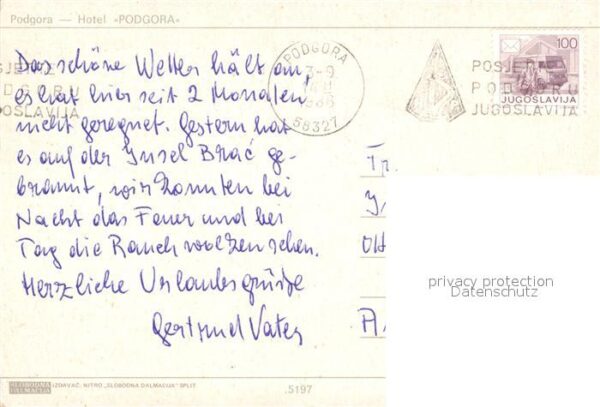 Podgora — Hotel «PODGORA»
Das schöne Wetter hält an,
es hat hier seit 2 Monaten
nicht geregnet. Gestern hat
es auf der Insel Brač ge-
brannt, wir konnten bei
Nacht das Feuer und bei
Tag die Rauchwolken sehen.
Herzliche Urlaubsgrüße
Gertrud Vater
PODGORA
58327
100
JUGOSLAVIJA
POSJE
PODGORU
JUGOSLAVIJA
privacy protection
Datenschutz
SLOBODNA
DALMACIJA
IZDAVAČ: NITRO „SLOBODNA DALMACIJA" SPLIT
5197